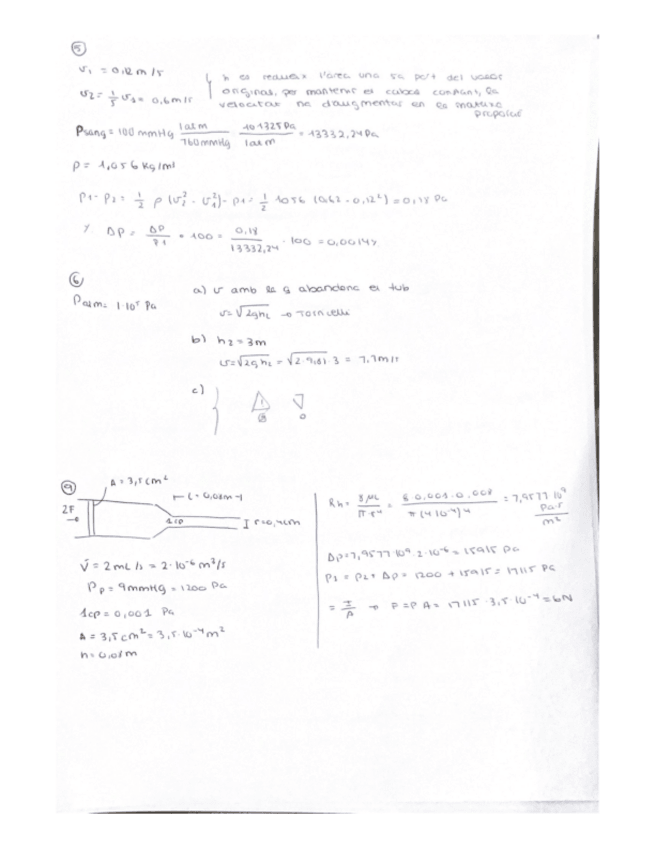 ⑤
v₁ = 0,12 m/s
v₂ = 1/5 v₁ = 0,6 m/s
h es redueix l'àrea una 5a part del vas
original, per mantenir el cabal constant, la
velocitat ha d'augmentar en la mateixa
proporció
Psang = 100 mmHg 1 atm / 760 mmHg · 101325 Pa / 1 atm = 13332,24 Pa
ρ = 1,056 kg/ml
P1 - P2 = 1/2 ρ (v₂² - v₁²) - P1 = 1/2 1056 (0,62 - 0,12²) = 0,18 Pa
% ΔP = ΔP / P1 · 100 = 0,18 / 13332,24 · 100 = 0,0014%
⑥
Patm = 1·10⁵ Pa
a) v amb la q abandona el tub
v = √2gh₂ → Torricelli
b) h₂ = 3m
v = √2gh₂ = √2·9,81·3 = 7,7 m/s
c)
⑨
A = 3,5 cm²
L = 0,08m
2F
1cp
r = 0,4cm
V̇ = 2 mL/s = 2·10⁻⁶ m³/s
Pp = 9 mmHg = 1200 Pa
1cp = 0,001 Pa
A = 3,5 cm² = 3,5·10⁻⁴ m²
h = 0,08m
Rh = 8μL / π·r⁴ = 8·0,001·0,008 / π(4·10⁻⁴)4 = 7,9577·10⁹ Pa·s / m²
Δp = 7,9577·10⁹ · 2·10⁻⁶ = 15915 Pa
P1 = P2 + ΔP = 1200 + 15915 = 17115 Pa
= F/A → F = P A = 17115 · 3,5·10⁻⁴ = 6N